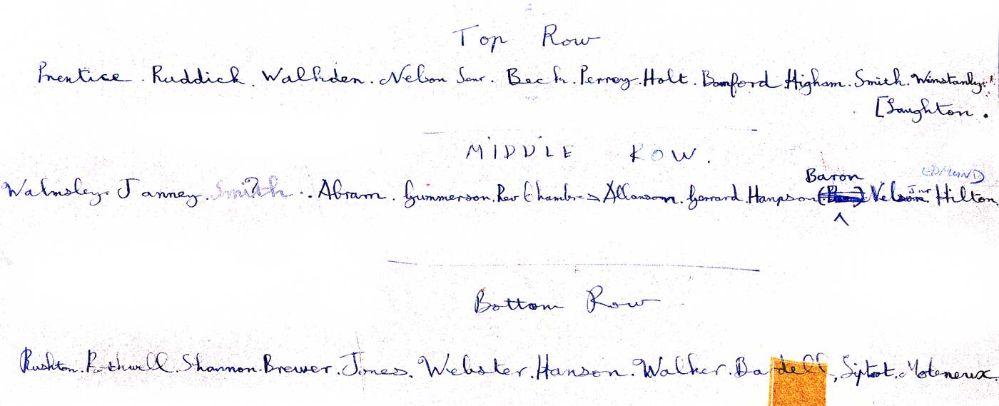 Top Row
Prentice. Ruddick. Walkden. Nelson Senr. Beck. Perrey. Holt. Bamford Higham. Smith. Winstanley.
[Laughton.
MIDDLE ROW.
Baron EDMUND
Walmsley. Janney. Smith ? . Abram. Gummerson. Rev Chambers Allanson. Gerrard. Hampson Nelson Jnr. Hilton
Bottom Row
Rushton. Rothwell. Shannon. Brewer. Jones. Webster. Hanson. Walker. Bardell, Moleneux